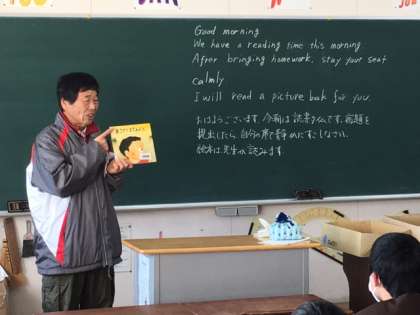 Good morning
We have a reading time this morning.
After bringing homework, stay your seat
calmly
I will read a picture book for you.
おはようございます。今朝は読書タイムです。宿題を
提出したら、自分の席で静かにすごしなさい。
絵本は、先生が読みます。